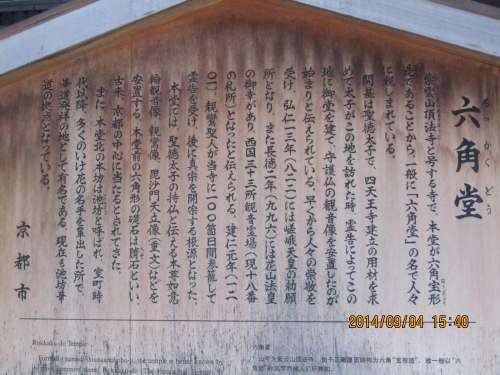 六角堂
ろっかくどう
紫雲山頂法寺と号する寺で、本堂が六角宝形
造であることから、一般に「六角堂」の名で人々
に親しまれている。
開基は聖徳太子で、四天王寺建立の用材を求
めて太子がこの地を訪れた時、霊告によってこの
地に御堂を建て、守護仏の観音像を安置したのが
始まりと伝えられている。早くから人々の崇敬を
受け、弘仁一三年(八二二)には嵯峨天皇の勅願
所となり、また長徳二年(九九六)には花山法皇
の御幸があり、西国三十三所観音霊場(現十八番
の札所)となったと伝えられる。建仁元年(一二
〇一)、親鸞聖人が当寺に一〇〇箇日間参籠して
霊告を受け、後に真宗を開宗する根源となった。
本堂には、聖徳太子の持仏と伝える本尊如意
輪観音像、親鸞像、毘沙門天立像(重文)などを
安置する。本堂前の六角形の礎石は臍石といい、
古来、京都の中心に当たるとされてきた。
また、本堂北の本坊は池坊と呼ばれ、室町時
代以降、多くのいけ花の名手を輩出した所で、
華道発祥の地として有名である。現在も池坊華
道の拠点となっている。
京都市
Rokkaku-do Temple
2014/09/04 15:40